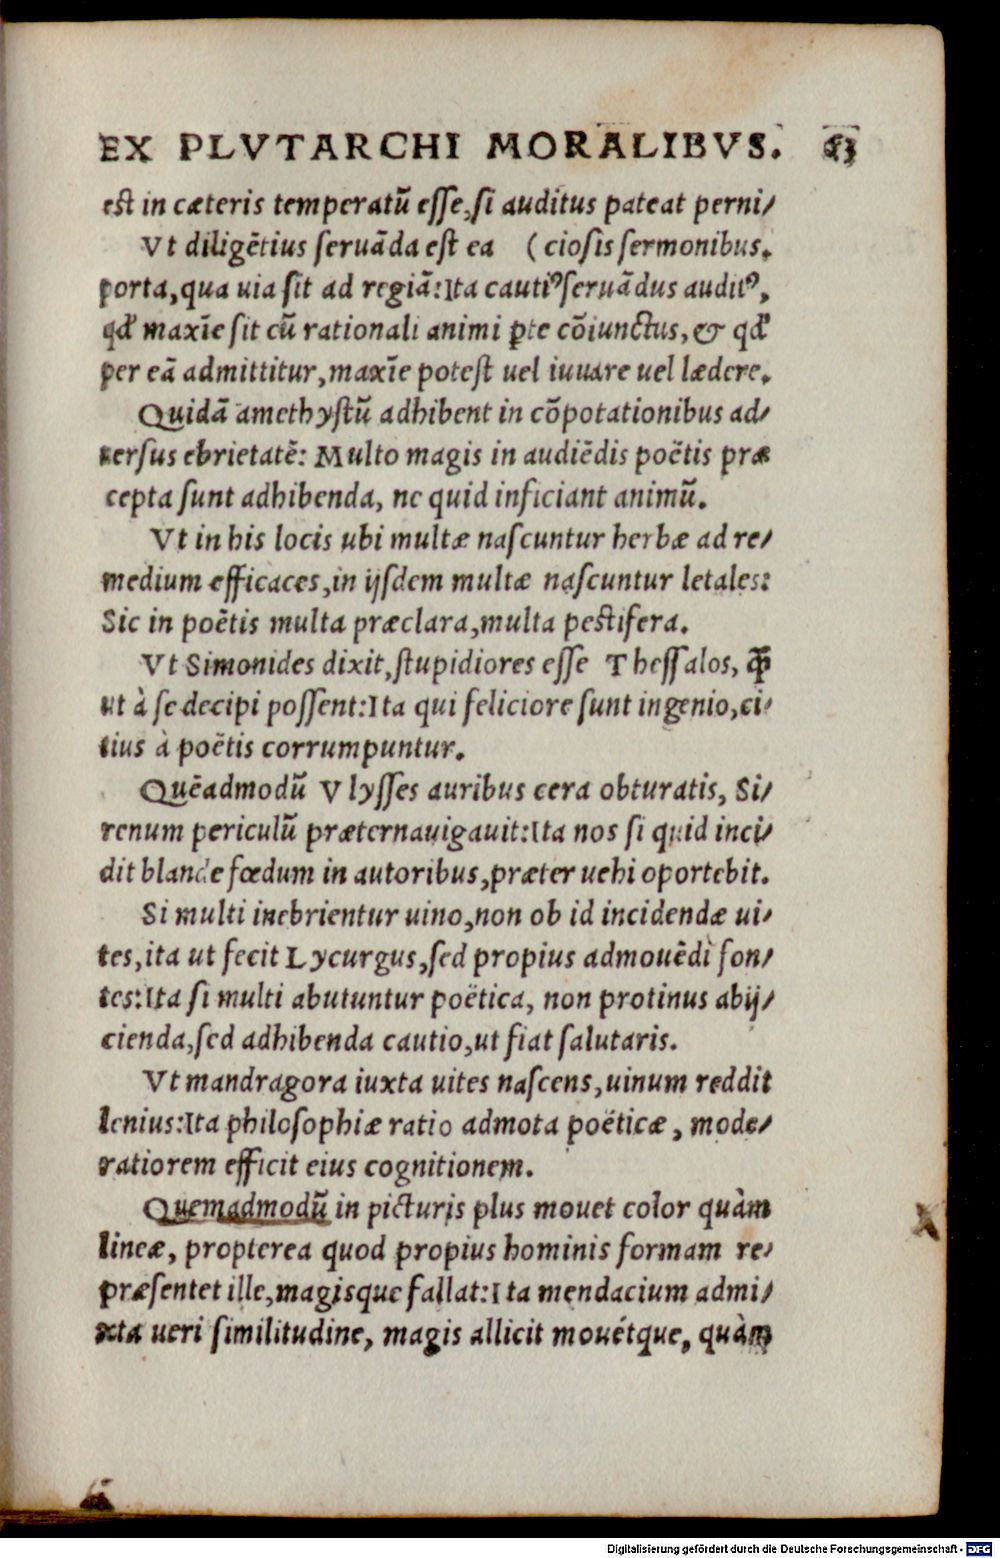 EX PLVTARCHI MORALIBVS.
est in cæteris temperatũ esse, si auditus pateat perni/
Vt diligẽtius seruãda est ea (ciosis sermonibus.
porta, qua uia sit ad regiã: Ita cautiꝰ seruãdus auditꝰ,
qđ maxĩe sit cũ rationali animi ꝑte cõiunctus, & qđ
per eã admittitur, maxĩe potest uel iuuare uel lædere.
Quidã amethystũ adhibent in cõpotationibus ad/
uersus ebrietatẽ: Multo magis in audiẽdis poëtis præ
cepta sunt adhibenda, ne quid inficiant animũ.
Vt in his locis ubi multæ nascuntur herbæ ad re/
medium efficaces, in ijsdem multæ nascuntur letales:
Sic in poëtis multa præclara, multa pestifera.
Vt Simonides dixit, stupidiores esse Thessalos, ꝙ̃
ut à se decipi possent: Ita qui feliciore sunt ingenio, ci/
tius à poëtis corrumpuntur.
Quẽadmodũ Vlysses auribus cera obturatis, Si/
renum periculũ præternauigauit: Ita nos si quid inci/
dit blande fœdum in autoribus, præter uehi oportebit.
Si multi inebrientur uino, non ob id incidendæ ui/
tes, ita ut fecit Lycurgus, sed propius admouẽdi fon/
tes: Ita si multi abutuntur poëtica, non protinus abij/
cienda, sed adhibenda cautio, ut fiat salutaris.
Vt mandragora iuxta uites nascens, uinum reddit
lenius: Ita philosophiæ ratio admota poëticæ, mode/
ratiorem efficit eius cognitionem.
Quemadmodũ in picturis plus mouet color quàm
lineæ, propterea quod propius hominis formam re/
præsentet ille, magisque fallat: Ita mendacium admi/
xta ueri similitudine, magis allicit mouétque, quàm
Digitalisierung gefördert durch die Deutsche Forschungsgemeinschaft - DFG